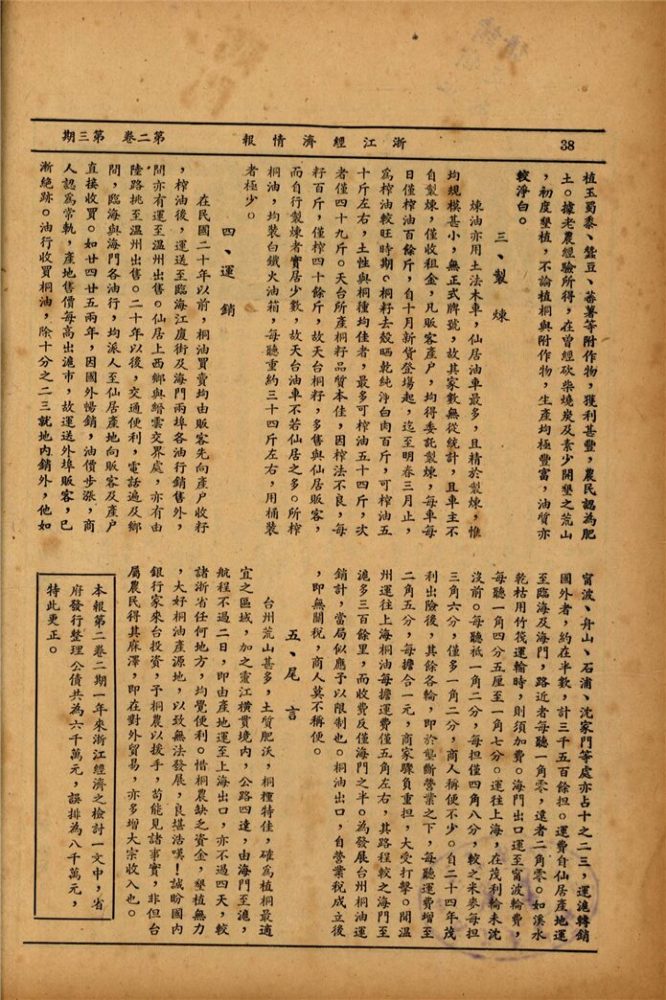 38
浙江經濟情報
第二卷 第三期
植玉蜀黍、蠶豆、蕃薯等附作物，獲利甚豐，農民認為肥
土。據老農經驗所得，在曾經砍柴燒炭及素少開墾之荒山
，初度墾植，不論植桐與附作物，生產均極豐富，油質亦
較淨白。
三、製煉
煉油亦用土法木車，仙居油車最多，且精於製煉，惟
均規模甚小，無正式牌號，故其家數無從統計，且車主不
自製煉，僅收租金，凡販客產户，均得委託製煉，每車每
日僅榨油百餘斤，自十月新貨登場起，迄至明春三月止，
爲榨油較旺時期。桐籽去殼晒乾純淨白肉百斤，可榨油五
十斤左右，土性與桐種均佳者，最多可榨油五十四斤，次
者僅四十九斤。天台所產桐籽品質本佳，因榨法不良，每
籽百斤，僅榨四十餘斤，故天台桐籽，多售與仙居販客，
而自行製煉者實居少數，故天台油車不若仙居之多。所榨
桐油，均裝白鐵火油箱，每聽重約三十四斤左右，用桶裝
者極少。
四、運銷
在民國二十年以前，桐油買賣均由販客先向產户收籽
，榨油後，運送至臨海江廈街及海門兩埠各油行銷售外，
間亦有運至温州出售。仙居上西鄉與縉雲交界處，亦有由
陸路挑至温州出售。二十年以後，交通便利，電話遍及鄉
間，臨海與海門各油行，均派人至仙居產地向販客及產户
直接收買。如廿四廿五兩年，因國外暢銷，油價步漲，商
人認爲常軌，產地售價每高出滬市，故運送外埠販客，已
漸絶跡。油行收買桐油，除十分之二三就地内銷外，他如
甯波、舟山、石浦、沈家門等處亦占十之二三，運滬轉銷
國外者，約在半數，計三千五百餘担。運費自仙居產地運
至臨海及海門，路近者每聽一角零，遠者二角零。如溪水
乾枯用竹筏運輸時，則須加費。海門出口運至甯波輪費，
每聽一角四分五厘至一角七分。運往上海，在茂利輪未沈
没前。每聽祗一角二分，每担僅四角八分，較之米麥每担
三角六分，僅多一角二分，商人稱便不少。自二十四年茂
利出險後，其餘各輪，即於壟斷營業之下，每聽運費增至
二角五分，每擔合一元，商家驟負重担，大受打擊。間温
州運往上海桐油每擔運費僅五角左右，其路程較之海門至
滬多三百餘里，而收費反僅海門之半。為發展台州桐油運
銷計，當局似應予以限制也。桐油出口，自營業税成立後
，即無關税，商人莫不稱便。
五、尾言
台州荒山甚多，土質肥沃，桐種特佳，確爲植桐最適
宜之區域，加之靈江橫貫境内，公路四達，由海門至滬，
航程不過二日，即由產地運至上海出口，亦不過四天，較
諸浙省任何地方，均覺便利。惜桐農缺乏資金，墾植無力
，大好桐油產源地，以致無法發展，良堪浩嘆！誠盼國内
銀行家來台投資，予桐農以援手，苟能見諸事實，非但台
屬農民得其麻澤，即在對外貿易，亦多增大宗收入也。
本報第二卷二期一年來浙江經濟之檢討一文中，省
府發行整理公債共為六千萬元，誤排為八千萬元，
特此更正。